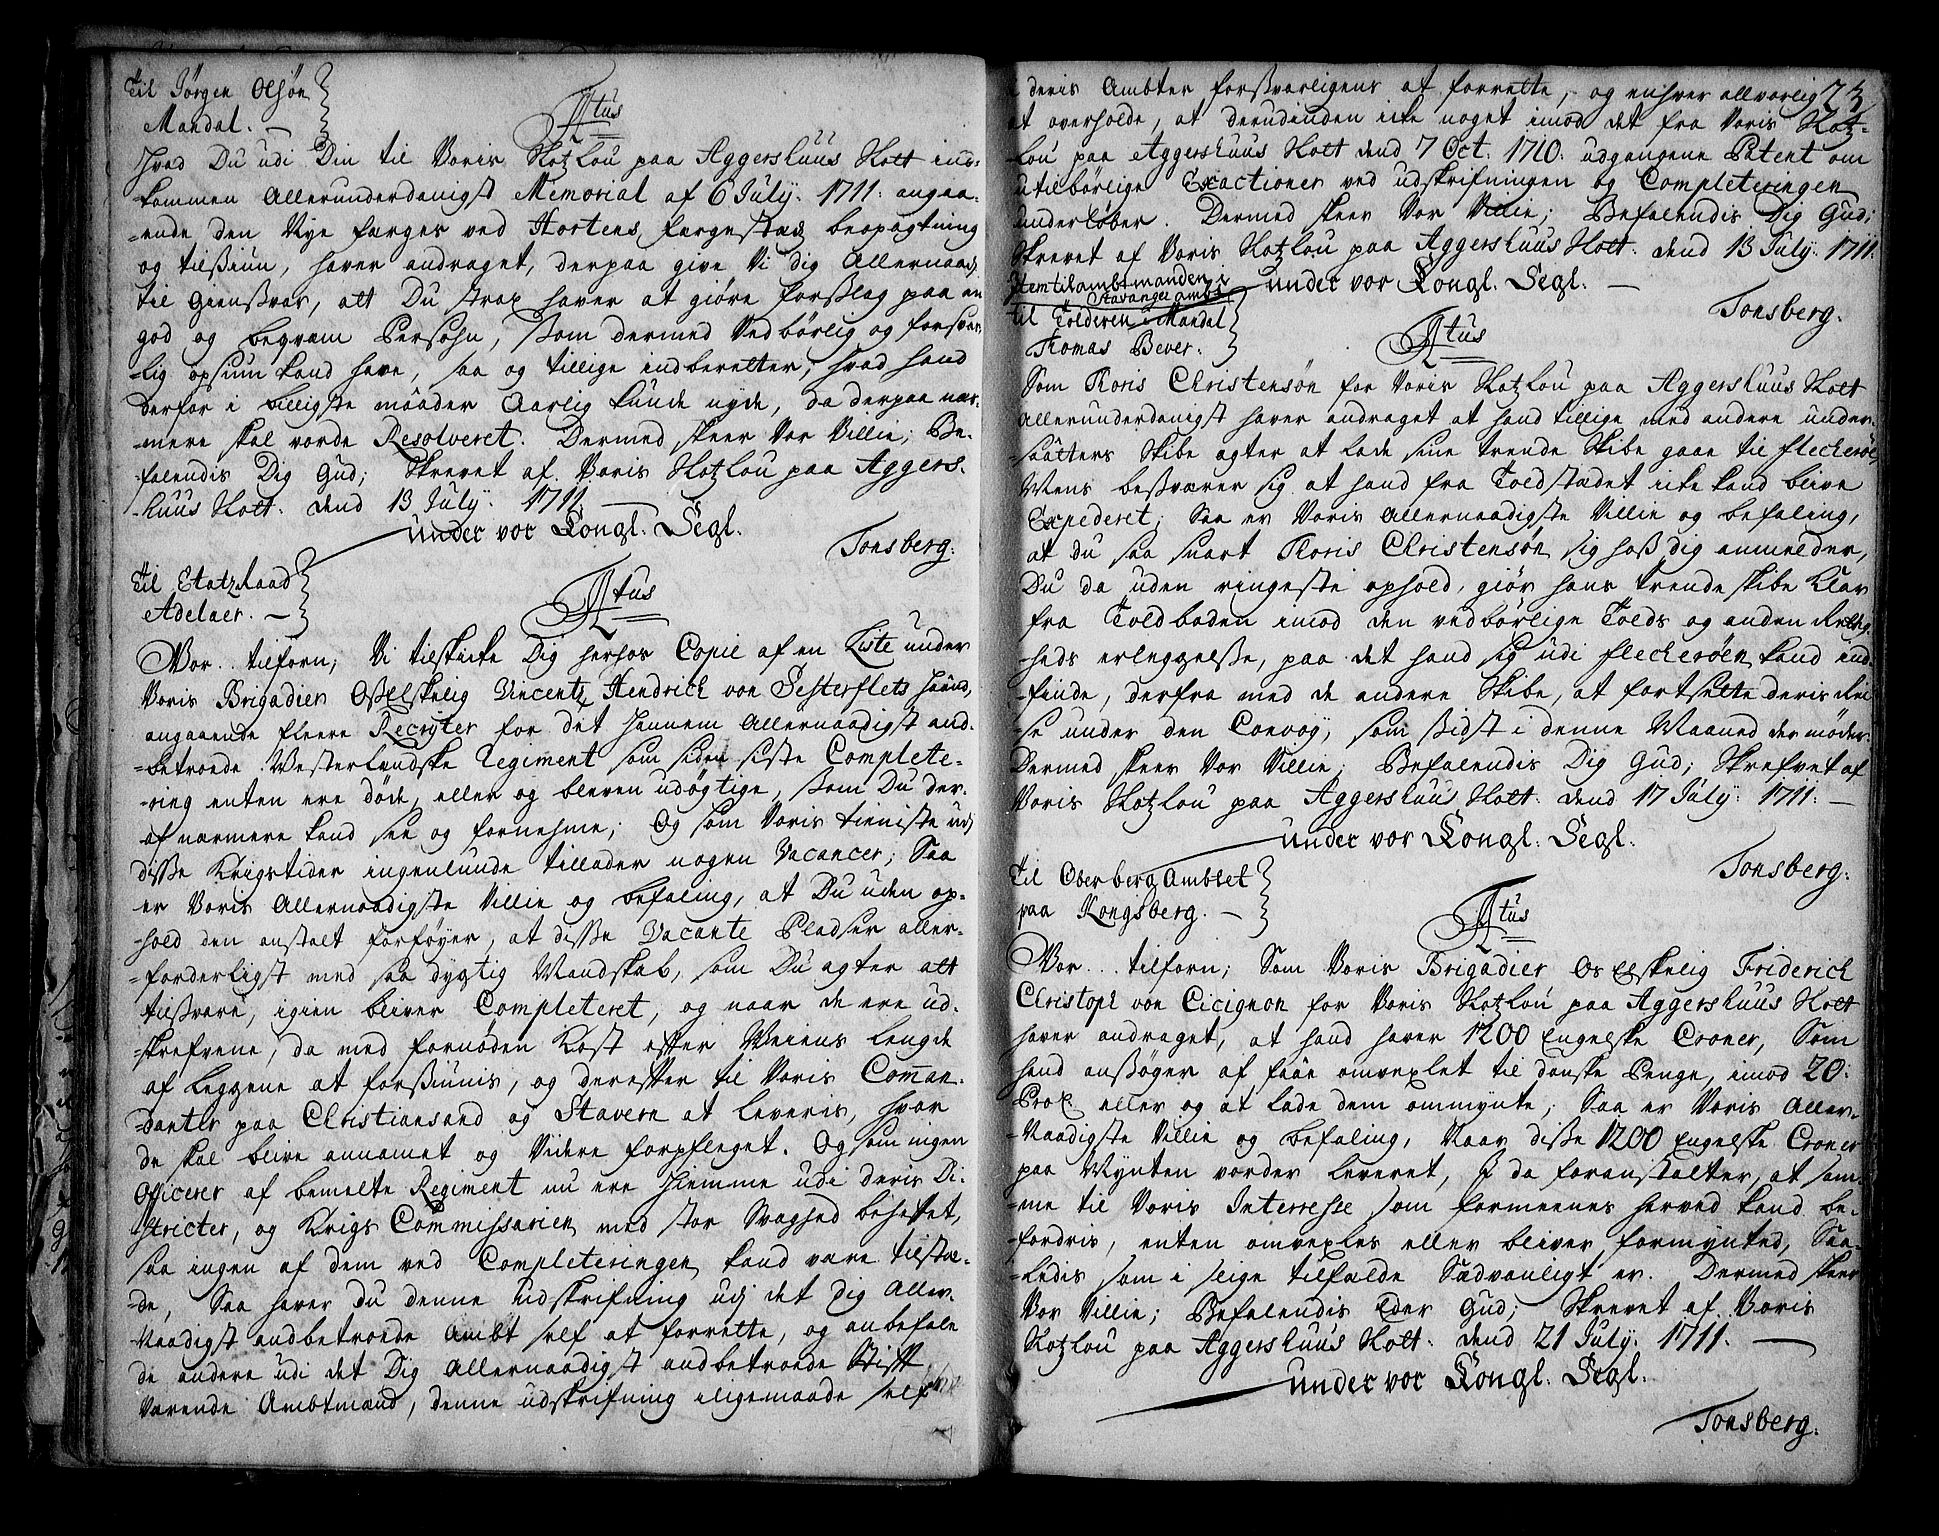 Til Jørgen Olsøn
Mandal. —
Ftus
Hvad Du udi Din til Voris Slotzlou paa Aggershuus Slott ind-
kommen Allerunderdanigst Memorial af 6 July. 1711. angaa-
-ende den Nye farges ved Hortens fargestæd beopagtning
og tilßiun, haver andraget, derpaa give Vi dig Allernaad.
til giensvar, att Du strax haver at giøre forslag paa en
god og beqvam Persohn, ßom dermed Vedbørlig og forsvar-
-lig opsiun kand have, saa og tillige indberetter, hvad hand
derfor i billigste maader Aarlig kunde nyde, da derpaa nær-
-mere skal vorde Resolveret. Dermed skeer Vor Villie; Be-
falendis Dig Gud; Skrevet af Voris Slotzlou paa Aggers-
huus Slott. dend 13 July. 1711.
under vor Kongl. Segl.
Tonsberg.
Til Etatzraad
Adelaer. —
Ftus
Vor.. tilforn; Vi tilskicke Dig herhos Copie af en Liste under
Voris Brigadier Oß Elskelig Vincentz Hendrich von Sesterflets haand,
angaaende fleere Recryter for det hannem Allernaadigst and-
-betroede Westerlendske Regiment som siden siste Complete-
-ring enten ere døde, eller og bleven udøgtige, ßom Du der-
af nærmere kand see og fornehme; Og som Voris tieniste udj
disse Krigstider ingenlunde tillader nogen Vacancer; Saa
er Voris Allernaadigste Villie og befaling, at Du uden op-
-hold den anstalt forføyer, at disse Vacante Pladser aller-
-forderligst med saa dygtig Mandskab, som Du agter att
tilsvare, igien bliver Completeret, og naar de ere ud-
-skrefvene, da med fornøden Kost efter Veiens Lengde
af Leggene at forsiunis, og derefter til Voris Coman-
-danter paa Christiansand og Stavern at leveris, hvor
de skal blive annamet og Videre forpfleget. Og som ingen
Officerer af bemelte Regiment nu ere hiemme udi deris Di-
stricter, og Krigs Commissarien med stor Svaghed behefftet,
saa ingen af dem ved Completeringen kand være tilstæ-
-de, Saa haver Du denne udskrifning udj det Dig Aller-
Naadigst andbetroede Ambt self at forrette, og anbefale
de andre udi det Dig Allernaadigst andbetroede Stifft
Værende Ambtmænd, denne udskrifning iligemaade self
i deris Ambter forsvarligens at forrette, og enhver allvorlig 23
at overholde, at derudinden icke noget imod det fra Voris Slotz-
lou paa Aggershuus Slott dend 7 Oct. 1710. udgangene Patent om
utilbørlige Exactioner ved udskrifningen og Completeringen
underløber. Dermed skeer Vor Villie; Befalendis Dig Gud;
Skrevet af Voris Slotzlou paa Aggershuus Slott. dend 13 July. 1711.
under vor Kongl. Segl. —
Tonsberg.
Item til ambtmanden i
Stavanger ambt
Til Tolderen i Mandal
Thomas Bever. —
Ftus
Som Thoris Christensøn for Voris Slotzlou paa Aggershuus Slott
Allerunderdanigst haver andraget at hand tillige med andre under-
saatters Skibe agter at lade sine trende Skibe gaae til flecherøe,
Mens besværer sig at hand fra Toldstædet icke kand blive
Expederet; Saa er Voris Allernaadigste Villie og befaling,
at du saa snart Thoris Christensøn sig hos dig anmelder,
Du da uden ringeste ophold, giør hans trende skibe Klar
fra Toldboden imod den vedbørlige Tolds og anden Rettig-
-heds erleggelse, paa det hand sig udi flecherøen kand ind-
-finde, derfra med de andere Skibe, at fortsette deris Rei
-se under den Convoy, som sidst i denne Maaned der møder.
Dermed skeer Vor Villie; Befalendis Dig Gud; Skrefvet af
Voris Slotzlou paa Aggershuus Slott. dend 17 July. 1711. —
under vor Kongl. Segl.
Tonsberg.
Til Oberberg Ambtet
paa Kongsberg. —
Ftus
Vor... tilforn; Som Voris Brigadier Os Elskelig Friderich
Christoph von Cicignon for Voris Slotzlou paa Aggershuus Slott
haver andraget, at hand haver 1200 Engelske Croner, Som
hand ansøger af faae omvexlet til danske Penge, imod 20.
Proc. eller og at lade dem ommynte; Saa er Voris Aller-
-Naadigste Villie og befaling, Naar disse 1200 Engelske Croner
paa Mynten vorder leveret, I da foranstalter, at sam-
-me til Voris Interresse som formeenes herved kand be-
-fordris, enten omvexles eller bliver formynted, Saa-
-ledis som i slige tilfælde Sædvanligt er. Dermed skeer
Vor Villie; Befalendis Eder Gud; Skrevet af Voris
Slotzlou paa Aggershuus Slott. dend 21 July. 1711. —
under vor Kongl. Segl.
Tonsberg.